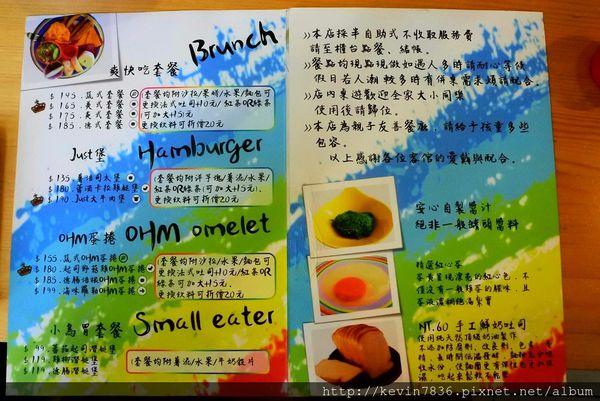 爽快吃套餐 Brunch
$145. 蔬式套餐
$165. 美式套餐
$175. 義式套餐
$185. 德式套餐
(套餐均附沙拉/果醬/水果/麵包可
更換法式吐司+10元/紅茶OR綠茶
(可加大+15)元.
更換飲料可折價20元
Just堡 Hamburger
$135. 薯泥司太堡
$180. 薯泥卡拉雞腿堡
$190. Just大牛肉堡
(套餐均附洋芋塊/薯泥/水果/
紅茶OR綠茶(可加大+15元).
更換飲料可折價20元
OHM蛋捲 OHM omelet
$155. 蔬式OHM蛋捲
$180. 起司野菇雞OHM蛋捲
$185. 德腸培根OHM蛋捲
$199. 海味雞肋OHM蛋捲
(套餐均附沙拉/水果/麵包可
更換法式吐司+10元/紅茶OR
綠茶(可加大+15元).
更換飲料可折價20元
小鳥胃套餐 Small eater
$99. 蕃茄起司潛艇堡
$119. 雞柳潛艇堡
$119. 德腸潛艇堡
(套餐均附薯泥/水果/牛奶穀片
>>本店採半自助式不收取服務費
請至櫃台點餐、結帳。
>>餐點均現點現做如遇人多時請耐心等候
假日若人潮較多時有併桌需求煩請配合。
>>店內桌遊歡迎全家大小同樂
使用後請歸位。
>>本店為親子友善餐廳，請給予孩童多些
包容。
以上感謝各位客倌的愛戴與配合。
安心自製醬汁
絕非一般罐頭醬料
精選紅心蛋
蛋黃呈現漂亮的紅心色，不
僅沒有一般雞蛋的腥味，且
蛋液濃稠飽滿紮實
NT.60 手工鮮奶吐司
使用純天然頂級奶油製作
不添加防腐劑，改良劑，色素，香
精，長時間低溫發酵
http://kevin7836.pixnet.net/album